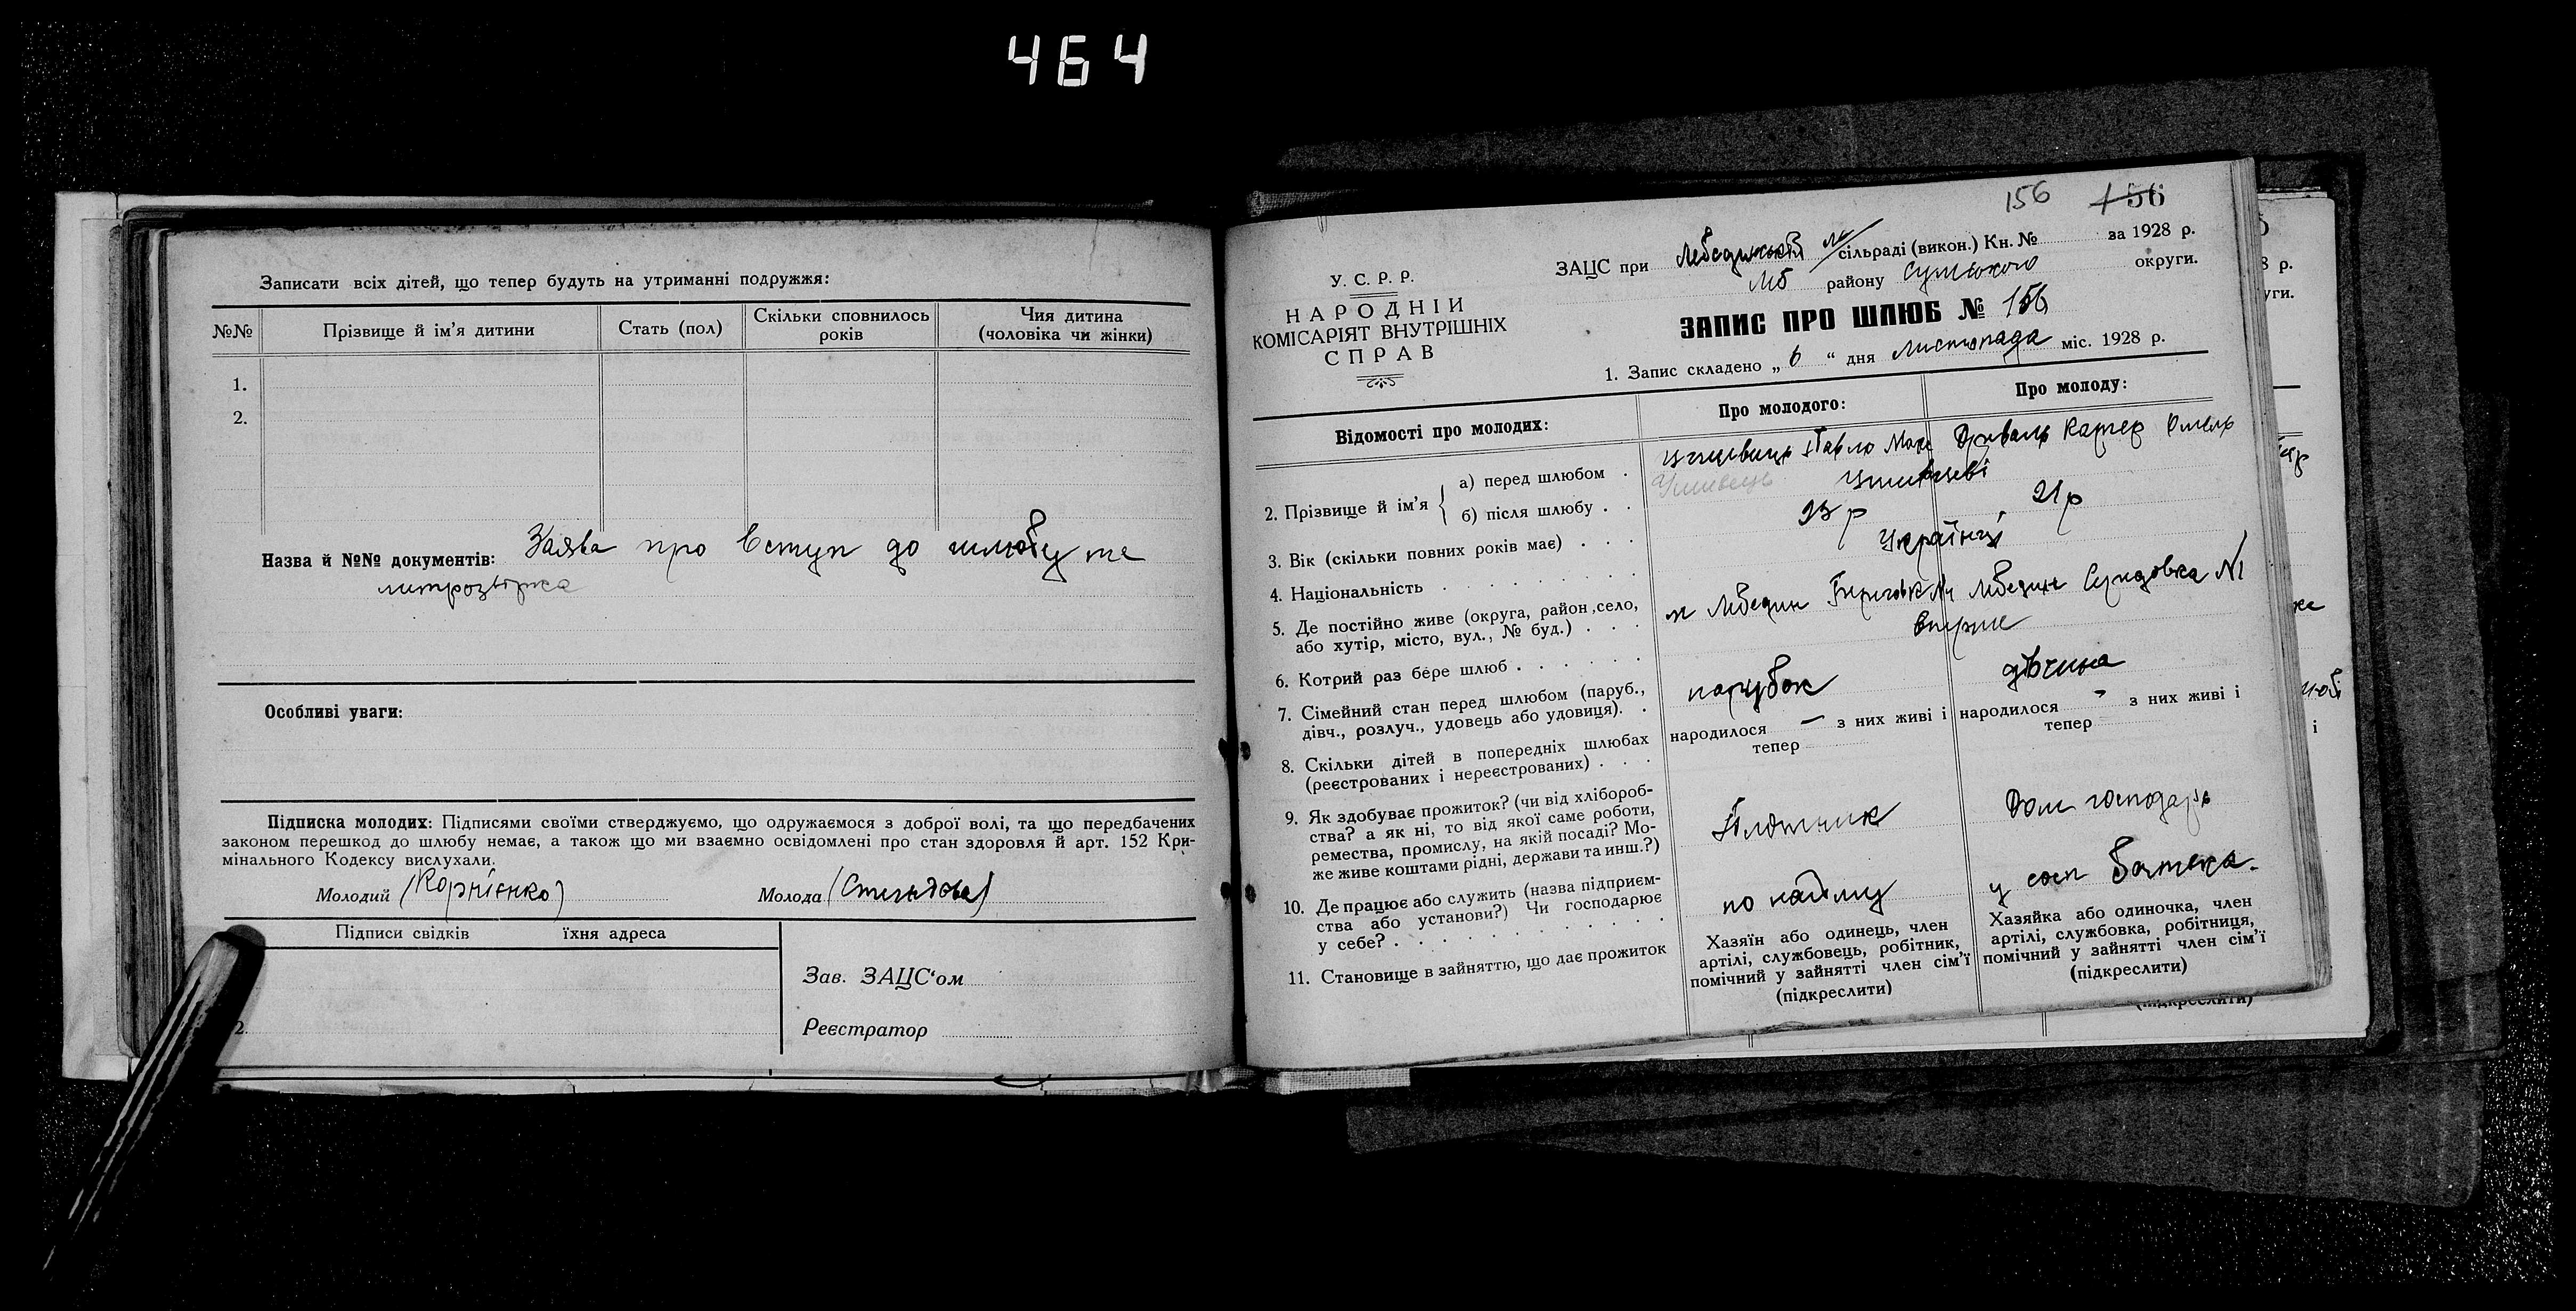 464
Записати всіх дітей, що тепер будуть на утриманні подружжя:
№№ Прізвище й ім'я дитини Стать (пол) Скільки сповнилось років Чия дитина (чоловіка чи жінки)
1.
2.
Назва й №№ документів: Заява про вступ до шлюбу та
Особливі уваги:
Підписка молодих: Підписями своїми стверджуємо, що одружаємося з доброї волі, та що передбачених
законом перешкод до шлюбу немає, а також що ми взаємно освідомлені про стан здоровля й арт. 152 Кри-
мінального Кодексу вислухали.
Молодий (Корнієнко) Молода
Підписи свідків їхня адреса
Зав. ЗАЦС'ом
2.
Реєстратор
156 156
У. С. Р. Р.
НАРОДНІЙ
КОМІСАРІЯТ ВНУТРІШНІХ
СПРАВ
ЗАЦС при Лебединській сільраді (викон.) Кн. № за 1928 р.
району Сумського округи.
ЗАПИС ПРО ШЛЮБ № 156
1. Запис складено „ 6 “ дня листопада міс. 1928 р.
Відомості про молодих: Про молодого: Про молоду:
2. Прізвище й ім'я { а) перед шлюбом . Павло
б) після шлюбу . .
3. Вік (скільки повних років має) . . . 23 р 21 р
4. Національність Українці
5. Де постійно живе (округа, район, село,
або хутір, місто, вул., № буд.) . . . м Лебедин Лебедин №1
6. Котрий раз бере шлюб . . . . . . вперше
7. Сімейний стан перед шлюбом (паруб.,
дівч., розлуч., удовець або удовиця). . парубок дівчина
8. Скільки дітей в попередніх шлюбах
(реєстрованих і нереєстрованих) . . . народилося — з них живі і тепер народилося - з них живі і тепер
9. Як здобуває прожиток? (чи від хлібороб-
ства? а як ні, то від якої саме роботи,
ремества, промислу, на якій посаді? Мо-
же живе коштами рідні, держави та инш.?) Плотник Дом господарь
10. Де працює або служить (назва підприєм-
ства або установи?) Чи господарює
у себе? . . . по найму у госп батька.
11. Становище в зайняттю, що дає прожиток
Хазяїн або одинець, член
артілі, службовець, робітник,
помічний у зайнятті член сім'ї
(підкреслити)
Хазяйка або одиночка, член
артілі, службовка, робітниця,
помічний у зайнятті член сім'ї
(підкреслити)